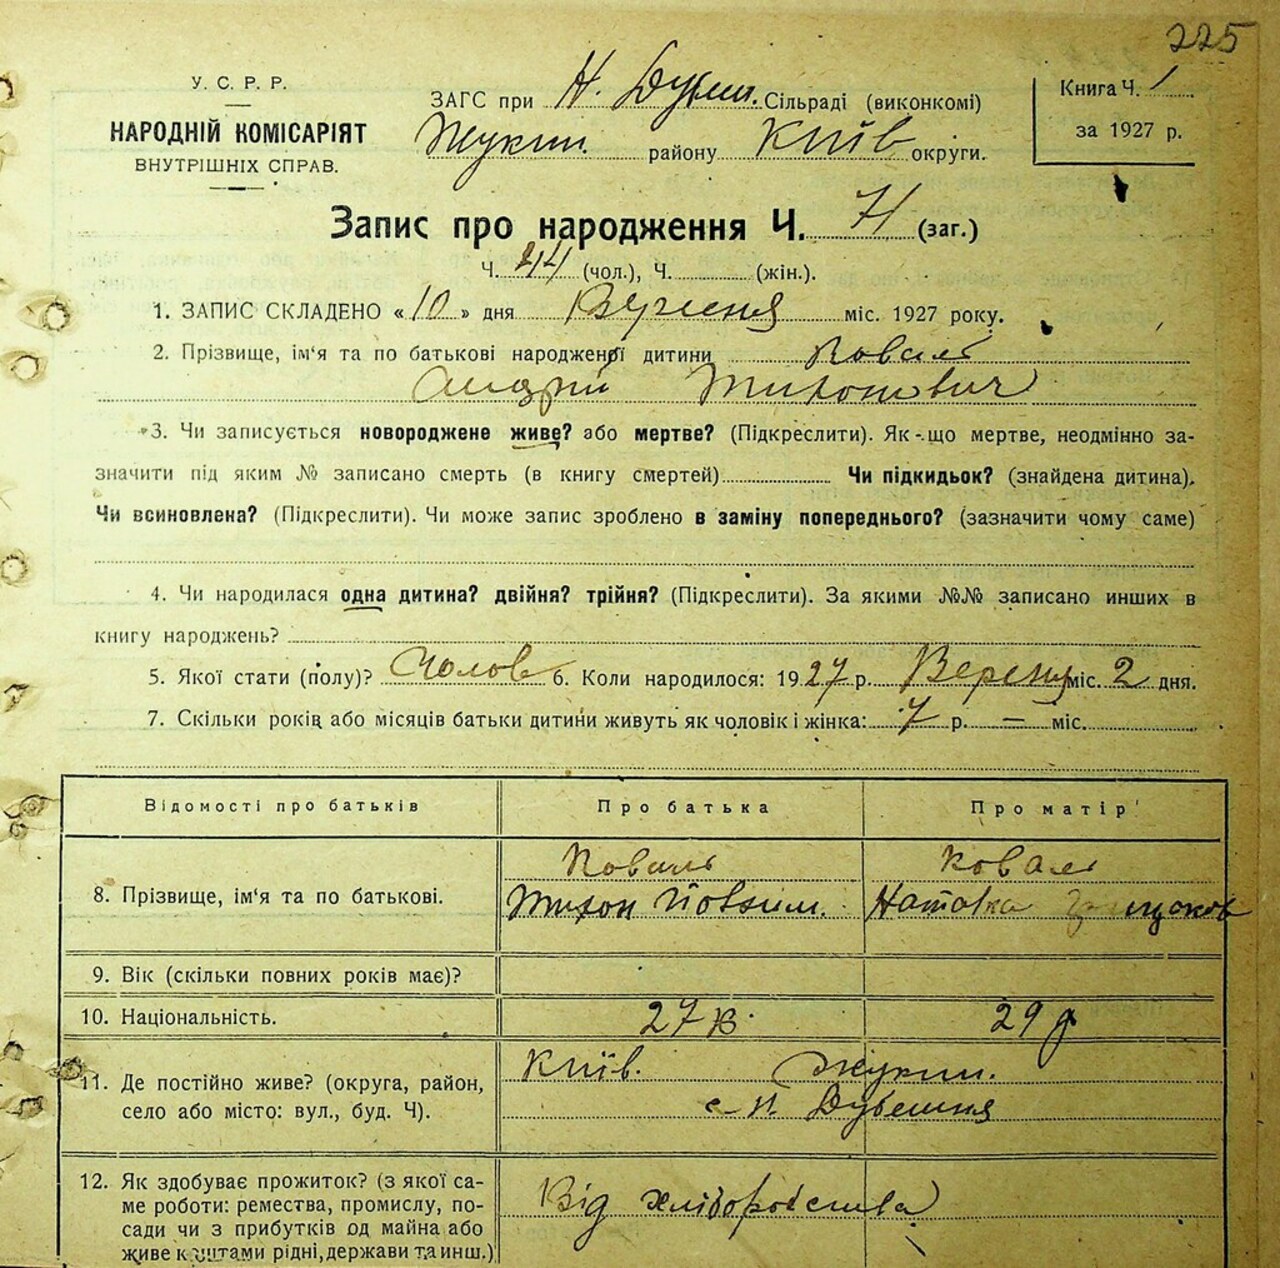 225
У. С. Р. Р.
НАРОДНІЙ КОМІСАРІЯТ
ВНУТРІШНІХ СПРАВ.
ЗАГС при Н. Дубеш. Сільраді (виконкомі)
Жукин. району Київ округи.
Книга Ч. 1
за 1927 р.
Запис про народження Ч. 71 (заг.)
Ч. 44 (чол.), Ч. (жін.).
1. ЗАПИС СКЛАДЕНО «10» дня Вересня міс. 1927 року.
2. Прізвище, ім‘я та по батькові народженої дитини Коваль
Андрій Тихонович
3. Чи записується новороджене живе? або мертве? (Підкреслити). Як-що мертве, неодмінно за-
значити під яким № записано смерть (в книгу смертей) Чи підкидьок? (знайдена дитина).
Чи всиновлена? (Підкреслити). Чи може запис зроблено в заміну попереднього? (зазначити чому саме)
4. Чи народилася одна дитина? двійня? трійня? (Підкреслити). За якими №№ записано инших в
книгу народжень?
5. Якої стати (полу)? Чолов 6. Коли народилося: 1927 р. Вересня міс. 2 дня.
7. Скільки років або місяців батьки дитини живуть як чоловік і жінка: 7 р. — міс.
Відомості про батьків Про батька Про матір
8. Прізвище, ім‘я та по батькові. Коваль Коваль
Тихон Йовхим. Наталка
9. Вік (скільки повних років має)?
10. Національність. 27 29
11. Де постійно живе? (округа, район, Київ. Жукин.
село або місто: вул., буд. Ч). с. Н. Дубешня
12. Як здобуває прожиток? (з якої са-
ме роботи: ремества, промислу, по- Від хліборобства
сади чи з прибутків од майна або
живе коштами рідні, держави та инш.)